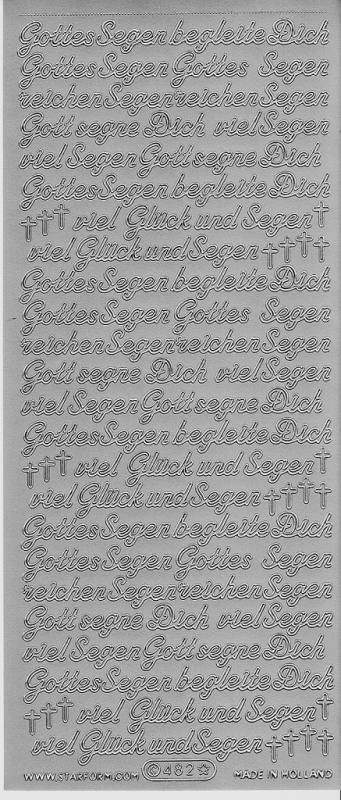 Gottes Segen begleite Dich
Gottes Segen Gottes Segen
reichen Segen reichen Segen
Gott segne Dich viel Segen
viel Segen Gott segne Dich
Gottes Segen begleite Dich
viel Glück und Segen
viel Glück und Segen
Gottes Segen begleite Dich
Gottes Segen Gottes Segen
reichen Segen reichen Segen
Gott segne Dich viel Segen
viel Segen Gott segne Dich
Gottes Segen begleite Dich
viel Glück und Segen
viel Glück und Segen
Gottes Segen begleite Dich
Gottes Segen Gottes Segen
reichen Segen reichen Segen
Gott segne Dich viel Segen
viel Segen Gott segne Dich
Gottes Segen begleite Dich
viel Glück und Segen
viel Glück und Segen
WWW.STARFORM.COM © 482 ☆ MADE IN HOLLAND